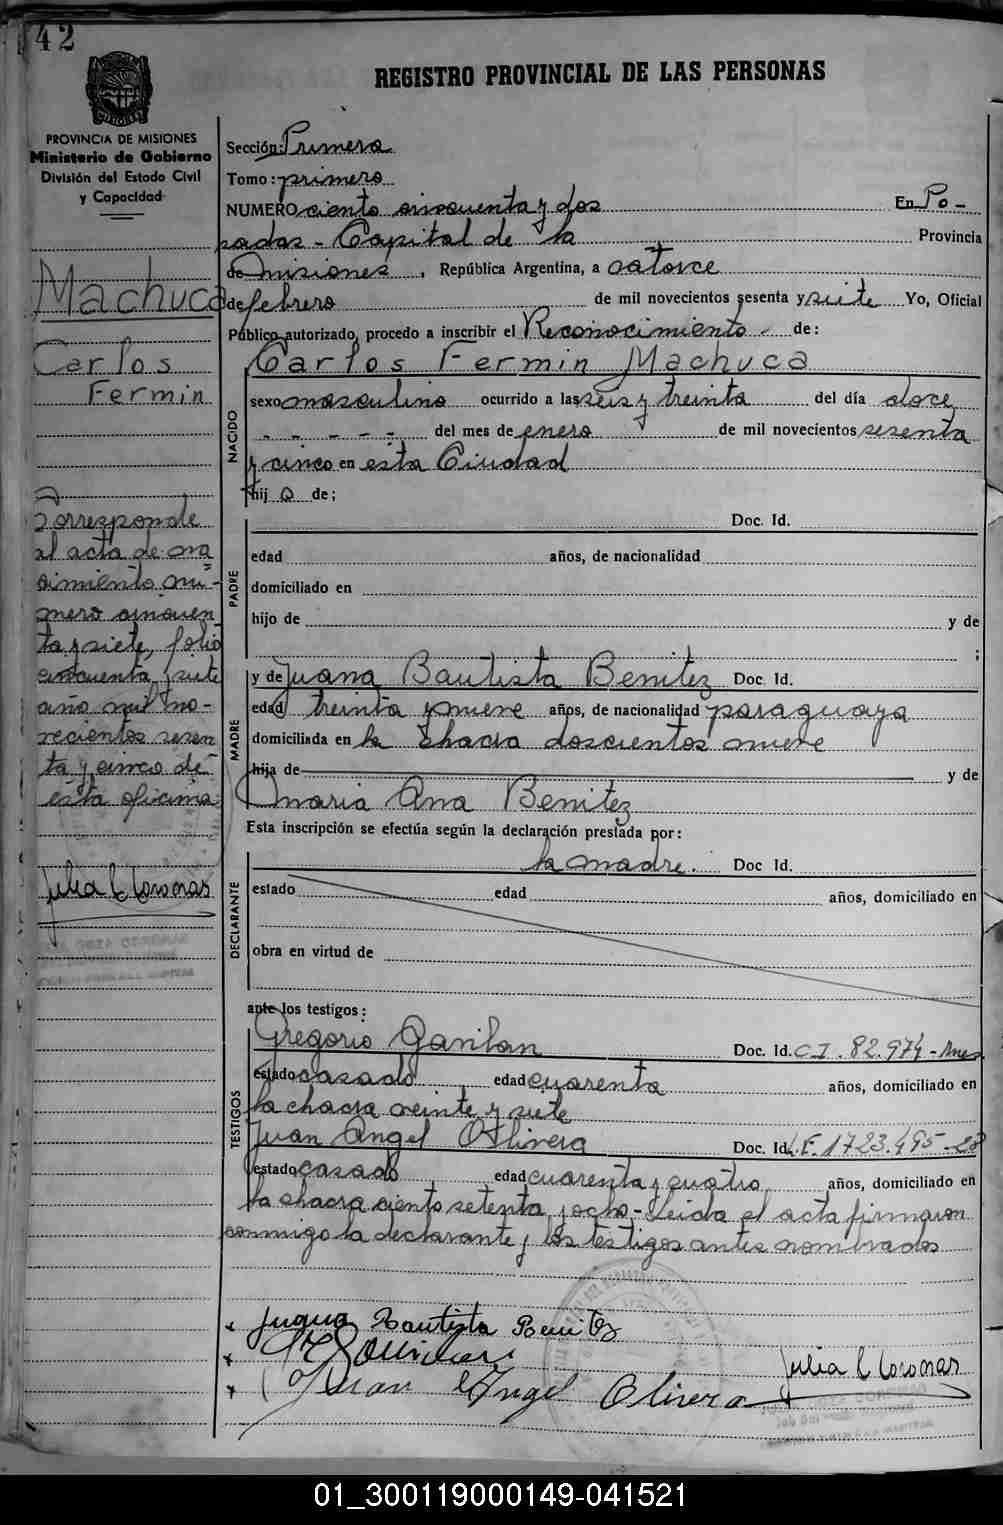 42
REGISTRO PROVINCIAL DE LAS PERSONAS
PROVINCIA DE MISIONES
Ministerio de Gobierno
División del Estado Civil
y Capacidad
Machuca
Carlos
Fermin
Corresponde
al acta de na
cimiento nu-
mero cincuen
ta y siete, folio
cincuenta y siete
año mil no-
vecientos sesen
ta y cinco de
esta oficina
Julia C
Sección: Primera
Tomo: primero
NUMERO ciento cincuenta y dos En Po-
sadas - Capital de la Provincia
de Misiones, República Argentina, a catorce
de febrero de mil novecientos sesenta y siete Yo, Oficial
Público autorizado, procedo a inscribir el Reconocimiento - de:
Carlos Fermin Machuca
NACIDO
sexo masculino ocurrido a las seis y treinta del día doce
- - - - - del mes de enero de mil novecientos sesenta
y cinco en esta Ciudad
hij o de:
PADRE
Doc. Id.
edad años, de nacionalidad
domiciliado en
hijo de y de
;
MADRE
y de Juana Bautista Benitez Doc. Id.
edad treinta y nueve años, de nacionalidad paraguaya
domiciliada en la chacra doscientos nueve
hija de y de
Maria Ana Benitez
Esta inscripción se efectúa según la declaración prestada por:
DECLARANTE
la madre. Doc Id.
estado edad años, domiciliado en
obra en virtud de
ante los testigos:
TESTIGOS
Gregorio Doc. Id. C.I. 82.974 - Mnes
estado casado edad cuarenta años, domiciliado en
la chacra veinte y siete
Juan Angel Olivera Doc. Id. L.E. 1723.495-28
estado casado edad cuarenta y cuatro años, domiciliado en
la chacra ciento setenta y ocho - Leida el acta firmaron
conmigo la declarante y los testigos antes nombrados
Juana Bautista Benitez
Juan Angel Olivera
Julia C
01_300119000149-041521